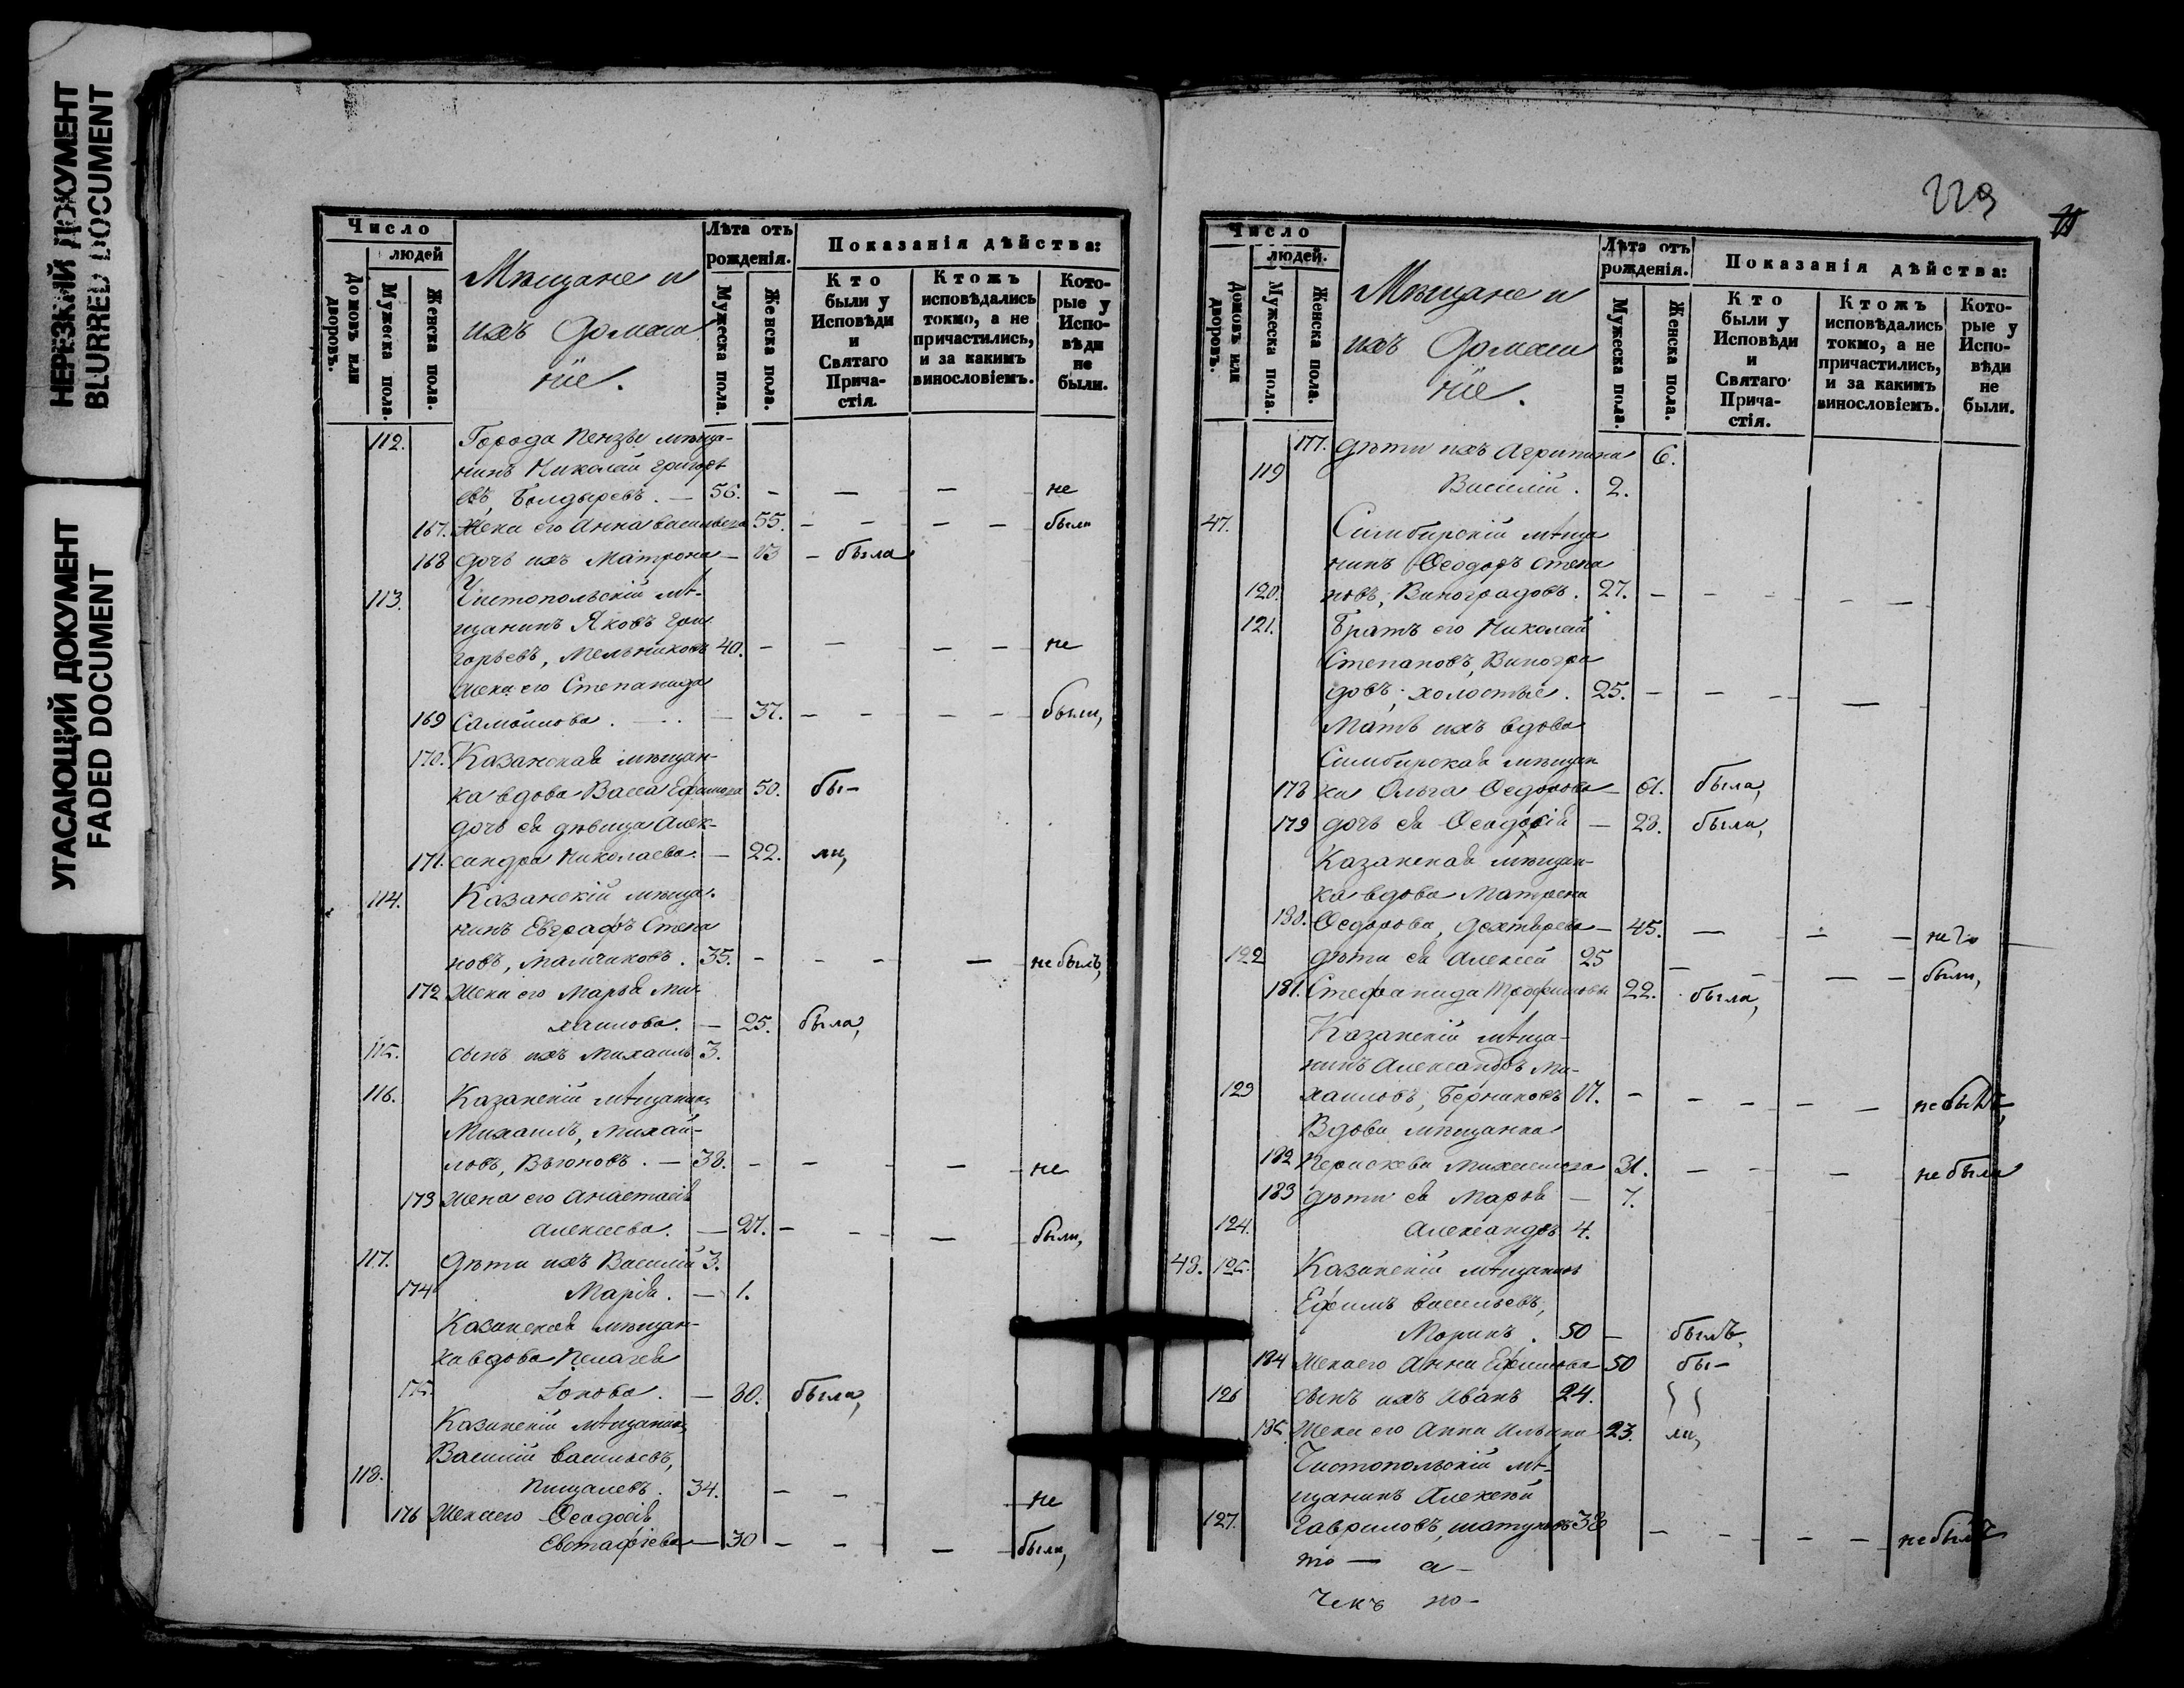 НЕРЕЗКИЙ ДОКУМЕНТ
BLURRED DOCUMENT
УГАСАЮЩИЙ ДОКУМЕНТ
FADED DOCUMENT
Число
людей
Домовъ или дворовъ.
Мужеска пола.
Женска пола.
Мѣщане и
ихъ домаш
ніе.
Лѣта отъ рожденія.
Мужеска пола.
Женска пола.
Показанія дѣйства:
Кто были у Исповѣди и Святаго Причастія.
Ктожъ исповѣдались токмо, а не причастились, и за какимъ винословіемъ.
Которые у Исповѣди не были.
112. Города Пензы мѣща-
нинъ Николай Григорь
евъ, Болдыревъ. — 56. — — — не
167. Жена его Анна Васильева 55. — — — — были
168 дочь ихъ Матрона — — была
113. Чистопольскій мѣ-
щанинъ Яковъ Гри
горьевъ, Мельниковъ 40. — — — — не
жена его Степанида
169 Самойлова. — 37. — — — — были,
170. Казанская мѣщан-
ка вдова Васса Ефимова 50. бы-
дочь ея дѣвица Алек-
171. сандра Николаева. — 22. ли,
114. Казанскій мѣща-
нинъ Евграфъ Степа
новъ, Мамчиковъ. 35. — — — — не былъ,
172 Жена его Марья Ми-
хаилова. — 25. была,
115. сынъ ихъ Михаилъ 3.
116. Казанскій мѣщанинъ
Михаилъ, Михай-
ловъ, Вьюновъ. — 38. — — — не
173 Жена его Анастасія
Алексеева. — 27. — — — были,
117. Дѣти ихъ Василій 3.
174 Марія. — 1.
Казанская мѣщан-
ка вдова Пелагея
175. Зонова. — 30. была,
Казанскій мѣщанинъ
Василій Васильевъ,
118. Пищалевъ. 34. — — не
176 Жена его Ѳеодосія
Евстафіева — 30 — — — были,
229
Число
людей.
Домовъ или дворовъ.
Мужеска пола.
Женска пола.
Мѣщане и
ихъ домаш
ніе.
Лѣта отъ рожденія.
Мужеска пола.
Женска пола.
Показанія дѣйства:
Кто были у Исповѣди и Святаго Причастія.
Ктожъ исповѣдались токмо, а не причастились, и за какимъ винословіемъ.
Которые у Исповѣди не были.
177. Дѣти ихъ Агрипина 6.
119 Василій. 2.
47. Симбирскій мѣща
нинъ Ѳеодоръ Степа
120. новъ, Виноградовъ. 27. — — — — —
121. Братъ его Николай
Степановъ, Виногра
довъ; холостые. 25. — — — — —
Мать ихъ вдова
Симбирская мѣщан
178 ка Ольга Ѳедорова — 61. была,
179 дочь ея Ѳеодосія — 28. была,
Казанская мѣщан-
ка вдова Матрена
180. Ѳедорова, Дехтярева — 45. — — — не
122 дѣти ея Алексей 25 — — — — были,
181. Стефанида Трофимова 22. была,
Казанскій мѣща-
нинъ Александръ Ми-
123 хаиловъ, Берниковъ — — — — — не былъ,
Вдова мѣщанка
182 Параскева Михеилова 31. — — — не была
183 дѣти ея Марья — 7.
124. Александръ 4.
48. 125. Казанскій мѣщанинъ
Ефимъ Васильевъ,
Моринъ. 50 — былъ,
184 Жена его Анна Ефимова 50 бы-
126 сынъ ихъ Иванъ 24.
185. Жена его Анна Ильина 23. ли,
Чистопольскій мѣ-
щанинъ Алексѣй
127. Гавриловъ, Шатуновъ 38 — — — — не былъ
то — а —
чекъ по —